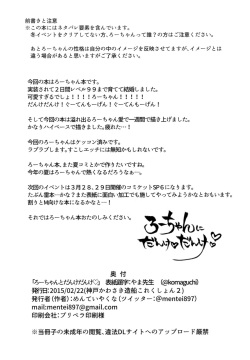 前書きと注意
※この本にはネタバレ要素を含んでいます。
冬イベントをクリアしてない方、ろーちゃんって誰?の方はご注意ください。
あとろーちゃんの性格は自分の中のイメージを反映させてますが、イメージとは
違う場合があると思いますがご了承ください。
今回の本はろーちゃん本です。
実装されて2日間レベル99まで育てて結婚しました。
可愛すぎるでしょ!!!!ろーちゃん!!!!
だんけだんけ!ぐーてんもーげん!ぐーてんもーげん!
そして今回の本は溢れ出るろーちゃん愛で一週間で描き上げました。
かなりハイペースで描きました。疲れた…!
今回のろーちゃんはケッコン済みです。
ラブラブします。すこしエッチには無知かもしれないです。
ろーちゃん本、また夏コミとかで作りたいですね。
今年の夏はろーちゃんで熱くなるだろうなぁー。
次回のイベントは3月28.29日開催のコミケットSP6になります。
たぶん愛本…かな?また表紙とか面白い加工でも施してやってみようかなとおもいます。
割とM向けな本になるかなと…!
それではろーちゃん本おたのしみください。
ろーちゃんに
だんけだんけ
奥 付
「ろーちゃんとだんけだんけ♡」 表紙題字:やま先生 (@komaguchi)
発行日:2015/02/22(神戸かわさき造船これくしょん2)
発行者(作者):めんていやくな(ツイッター:@mentei897)
mail:mentei897@gmail.com
印刷会社:プリペラ印刷様
※当冊子の未成年の閲覧、違法DLサイトへのアップロード厳禁